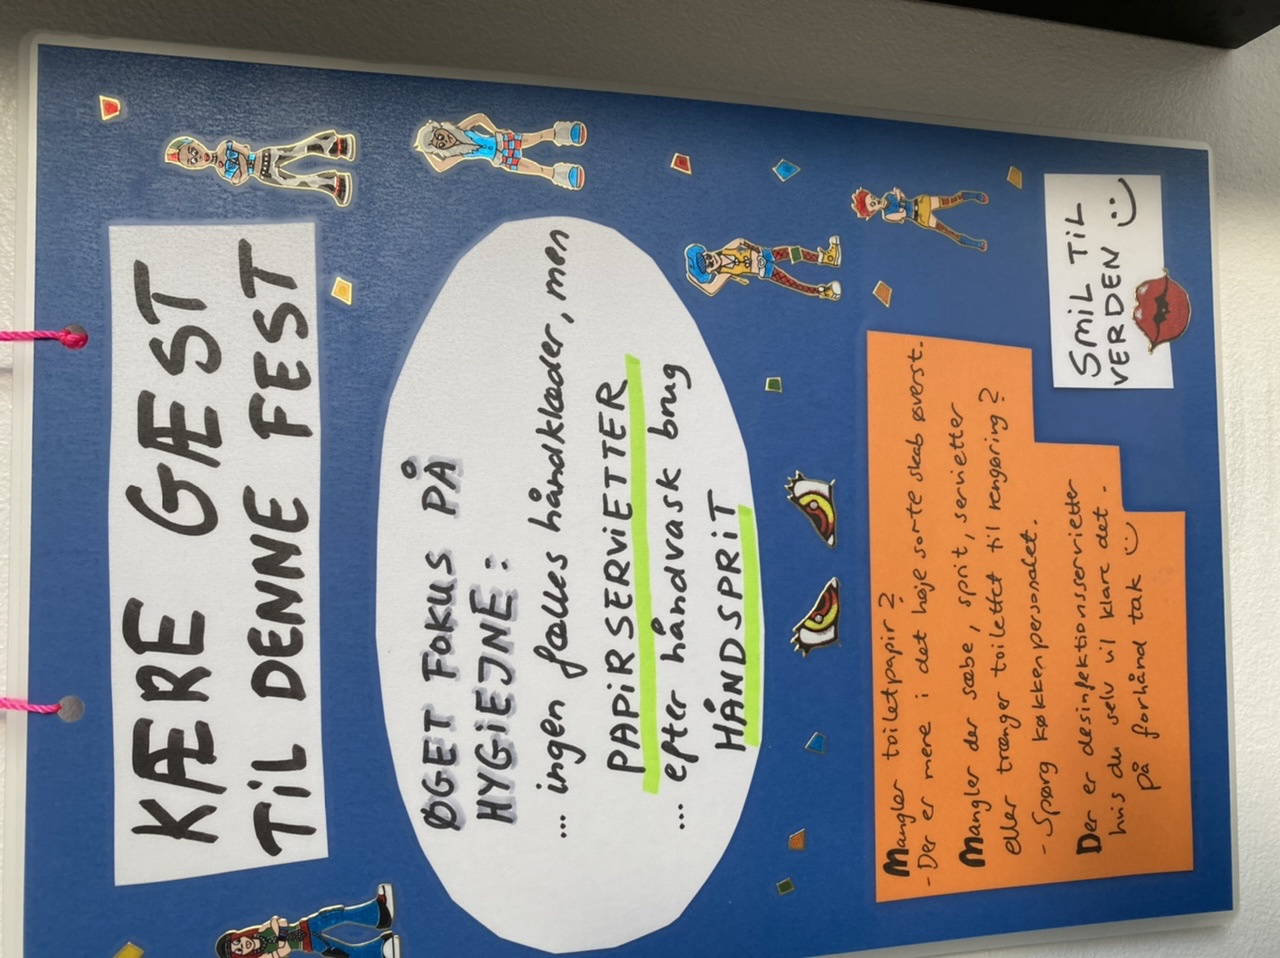 KÆRE GÆST
TiL DENNE FEST
ØGET FOKUS PÅ
HYGiEJNE:
... ingen fælles håndklæder, men
PAPiRSERViETTER
... efter håndvask brug
HÅNDSPRiT
Mangler toiletpapir?
- Der er mere i det høje sorte skab øverst.
Mangler der sæbe, sprit, servietter
eller trænger toilettet til rengøring?
- Spørg køkkenpersonalet.
Der er desinfektionsservietter
hvis du selv vil klare det.
på forhånd tak :)
SMiL TiL
VERDEN :)